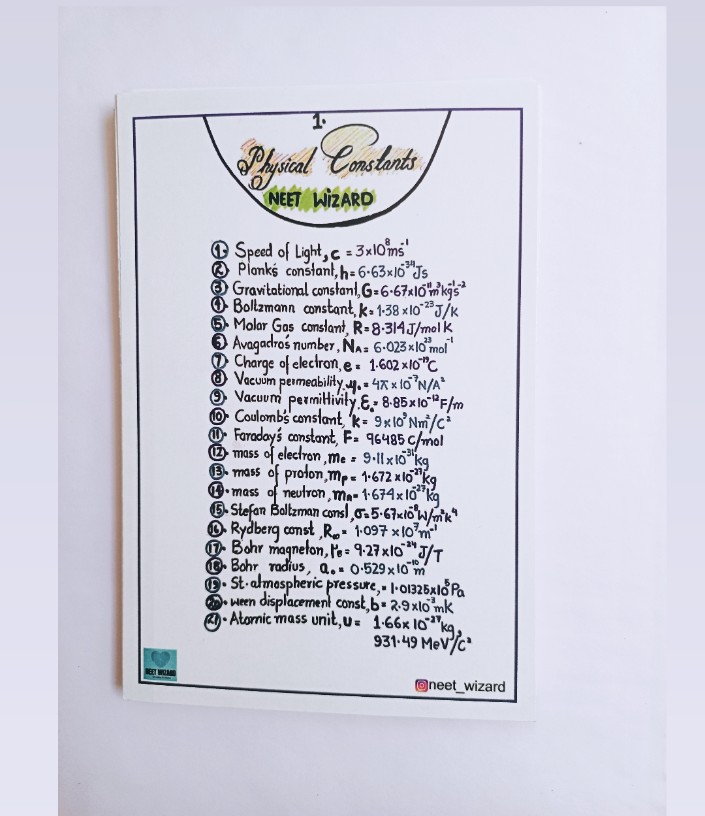 1.
Physical Constants
NEET WIZARD
1. Speed of Light, c = 3×10⁸ms⁻¹
2. Plank's constant, h= 6·63×10⁻³⁴Js
3. Gravitational constant, G=6·67×10⁻¹¹m³kg⁻¹s⁻²
4. Boltzmann constant, k= 1·38 ×10⁻²³J/K
5. Molar Gas constant, R= 8·314 J/mol K
6. Avagadro's number, Nᴀ= 6·023×10²³mol⁻¹
7. Charge of electron, e = 1·602×10⁻¹⁹C
8. Vacuum permeability, μ₀ = 4π×10⁻⁷N/A²
9. Vacuum permittivity, ε₀= 8·85×10⁻¹²F/m
10. Coulomb's constant, k= 9×10⁹Nm²/C²
11. Faraday's constant, F= 96485 C/mol
12. mass of electron, mₑ = 9·11×10⁻³¹kg
13. mass of proton, mₚ= 1·672×10⁻²⁷kg
14. mass of neutron, mₙ= 1·674×10⁻²⁷kg
15. Stefan Boltzman const, σ=5·67×10⁻⁸W/m²k⁴
16. Rydberg const, R∞ = 1·097 ×10⁷m⁻¹
17. Bohr magneton, μʙ= 9·27×10⁻²⁴J/T
18. Bohr radius, a₀ = 0·529×10⁻¹⁰m
19. St. atmospheric pressure, = 1·01325×10⁵Pa
20. ween displacement const, b= 2·9×10⁻³mK
21. Atomic mass unit, u= 1·66×10⁻²⁷kg,
931·49 MeV/c²
NEET WIZARD
neet_wizard